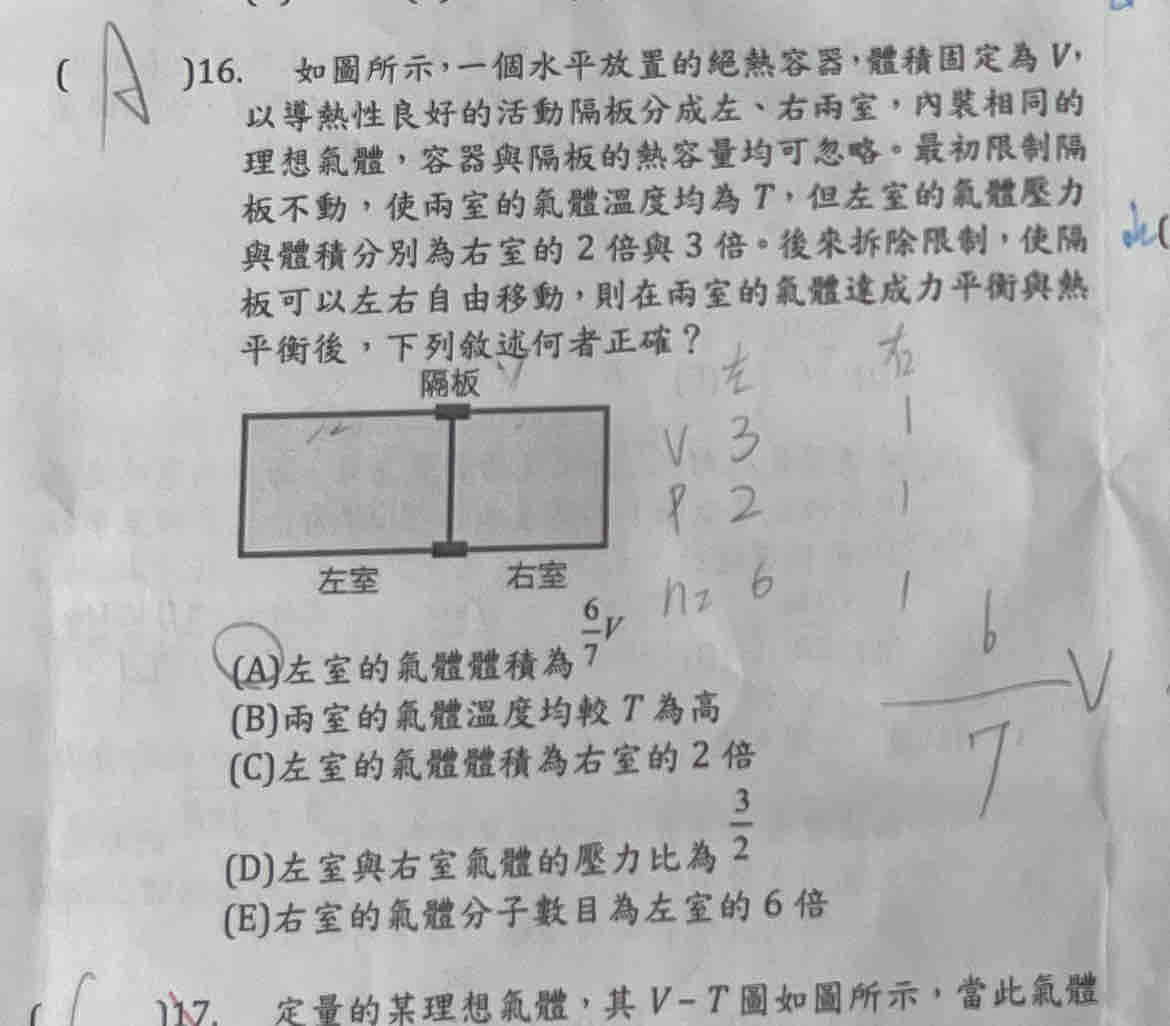 ( A )16. 如圖所示,一個水平放置的絕熱容器,體積固定為 V,
以導熱性良好的活動隔板分成左、右兩室,內裝相同的
理想氣體,容器與隔板的熱容量均可忽略。最初限制隔
板不動,使兩室的氣體溫度均為 T,但左室的氣體壓力
與體積分別為右室的 2 倍與 3 倍。後來拆除限制,使隔
板可以左右自由移動,則在兩室的氣體達成力平衡與熱
平衡後,下列敘述何者正確?
隔板
左 右
V 3 1
P 2 1
n= 6 1
左室 右室
6/7 V
(A)左室的氣體體積為 6/7 V
(B)兩室的氣體溫度均較 T 為高
(C)左室的氣體體積為右室的 2 倍
(D)左室與右室氣體的壓力比為 3/2
(E)右室的氣體分子數目為左室的 6 倍
( )17. 定量的某理想氣體,其 V-T 圖如圖所示,當此氣體